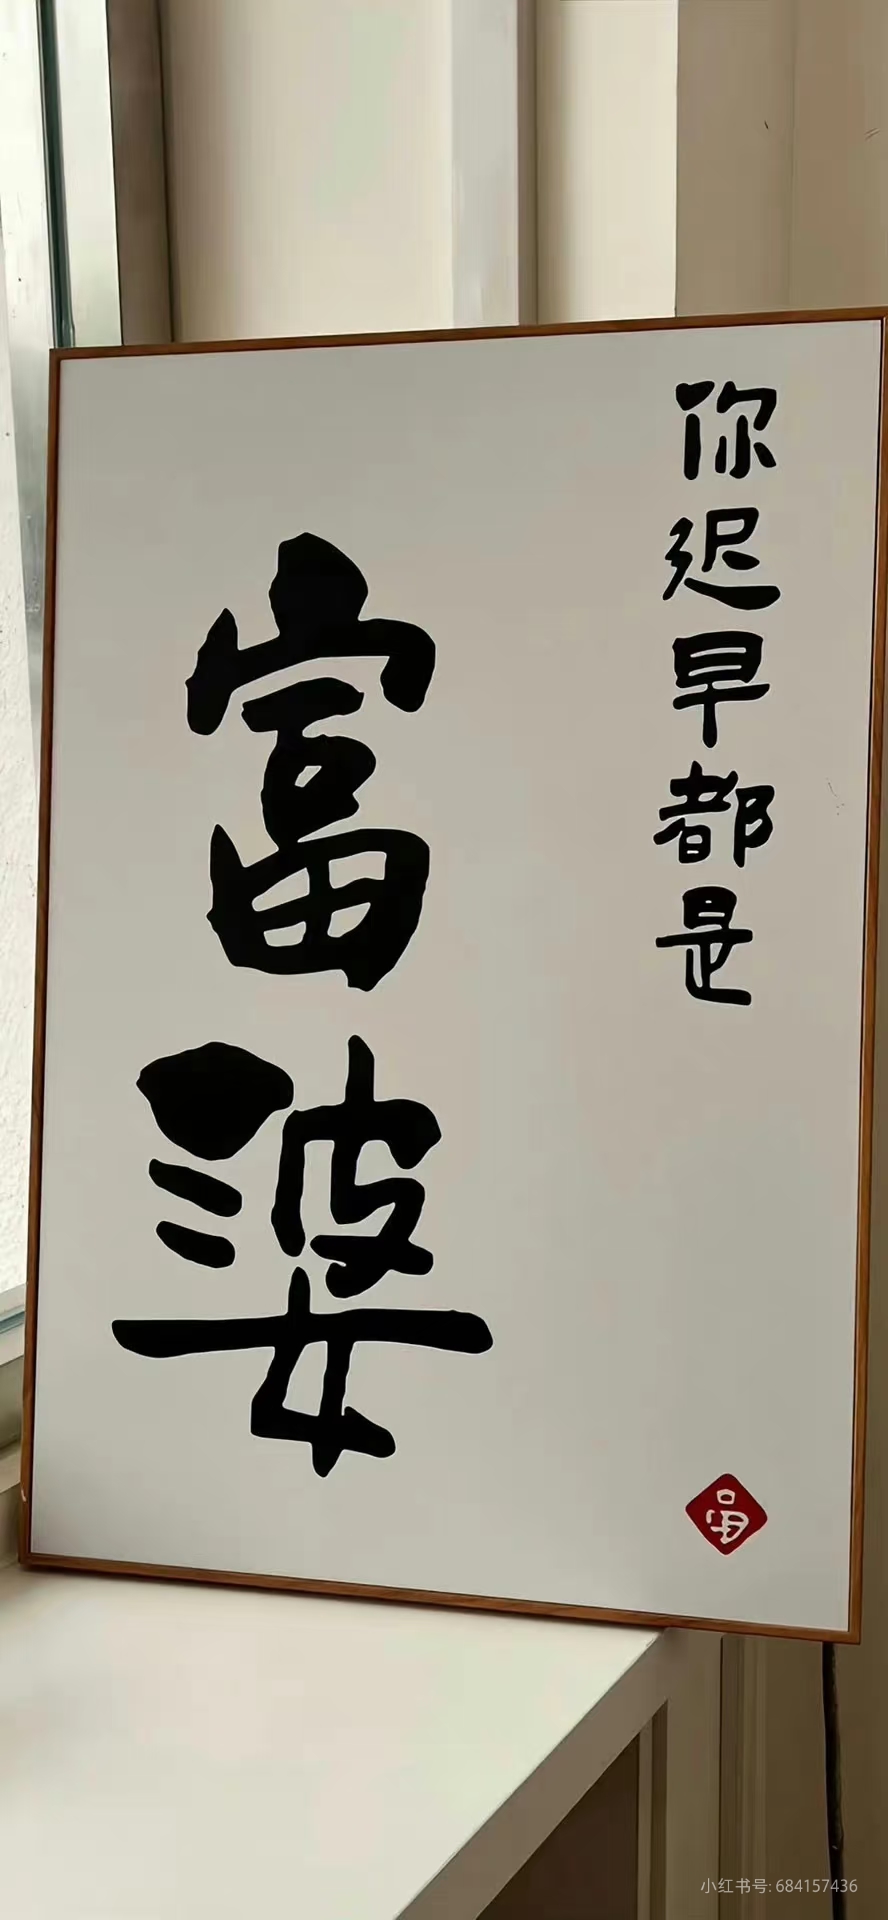 你迟早都是
富婆
富
小红书号: 684157436